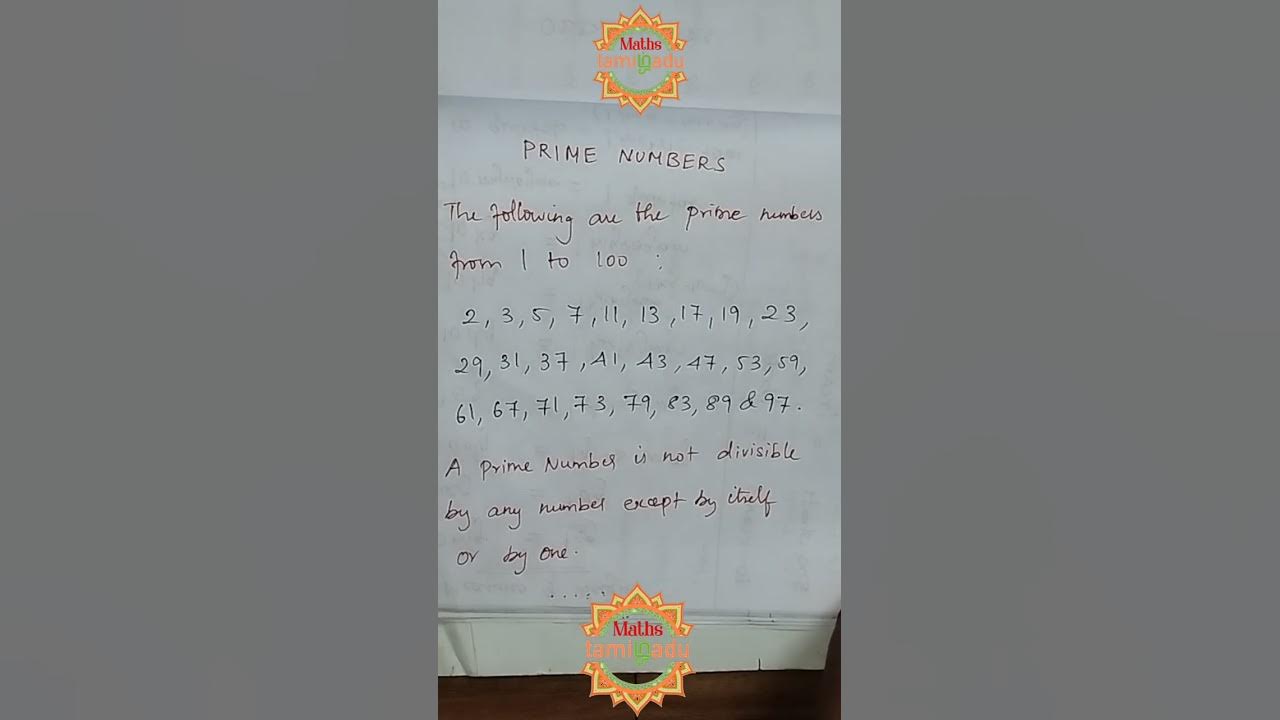 Maths
tamiழnadu
PRIME NUMBERS
The following are the prime numbers
from 1 to 100 :
2, 3, 5, 7, 11, 13, 17, 19, 23,
29, 31, 37, 41, 43, 47, 53, 59,
61, 67, 71, 73, 79, 83, 89 & 97.
A Prime Number is not divisible
by any number except by itself
or by one.
......
Maths
tamiழnadu